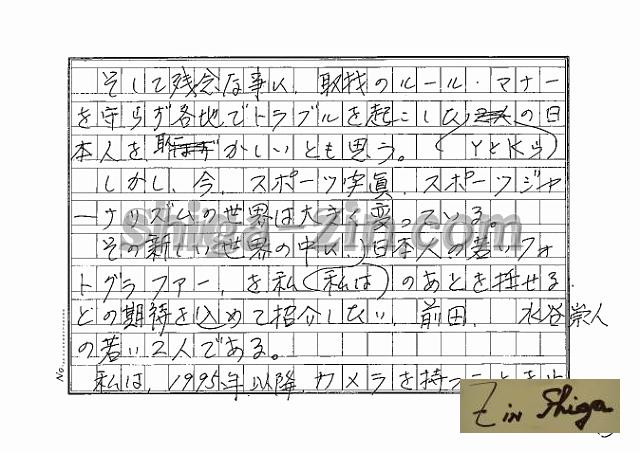 そして残念な事に、取材のルール・マナー
を守らず各地でトラブルを起こした の日
本人を恥 かしいとも思う。(YとKら)
しかし、今、スポーツ写真、スポーツジャ
ーナリズムの世界は大きく変っている。
その新しい世界の中に、日本人の若いフォ
トグラファー、を私(私は)のあとを託せる
との期待を込めて紹介したい、前田、水谷崇人
の若い2人である。
私は、1995年以降、カメラを持つことを
No.
shiga-zin.com
Z in Shiga